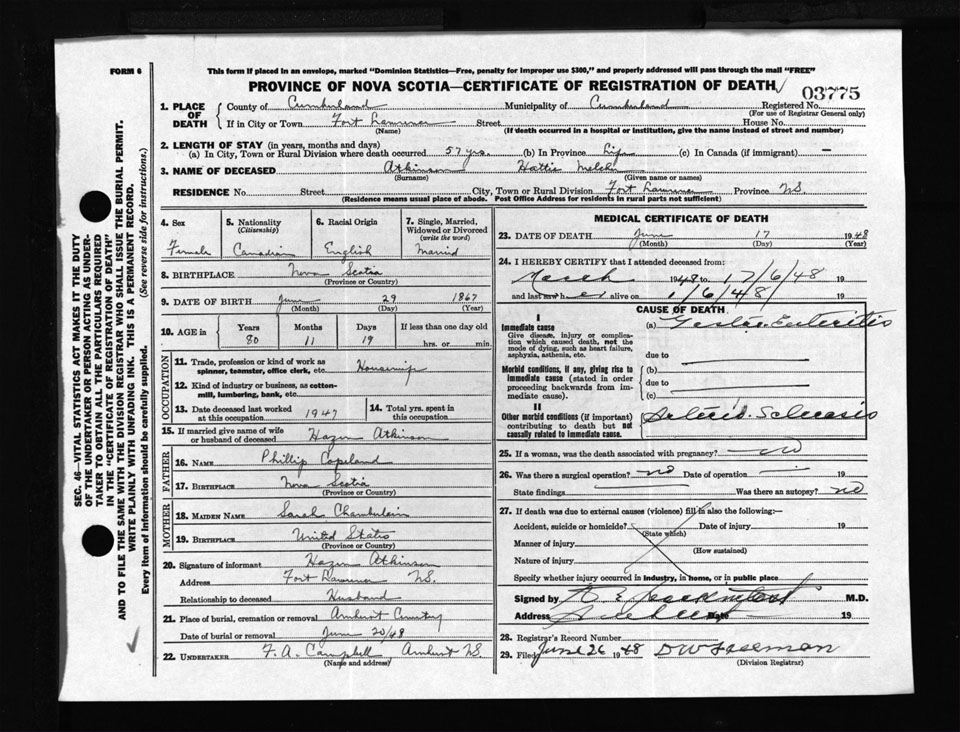 FORM 6
This form if placed in an envelope, marked "Dominion Statistics—Free, penalty for improper use $300," and properly addressed will pass through the mail "FREE"
PROVINCE OF NOVA SCOTIA—CERTIFICATE OF REGISTRATION OF DEATH
03775
1. PLACE OF DEATH
County of Cumberland Municipality of Cumberland Registered No.
(For use of Registrar General only)
If in City or Town Fort Lawrence Street House No.
(Name) (If death occurred in a hospital or institution, give the name instead of street and number)
2. LENGTH OF STAY (in years, months and days)
(a) In City, Town or Rural Division where death occurred 57 yrs. (b) In Province Life (c) In Canada (if immigrant) —
3. NAME OF DECEASED Atkinson Hattie
(Surname) (Given name or names)
RESIDENCE No. Street City, Town or Rural Division Fort Lawrence Province NS.
(Residence means usual place of abode. Post Office Address for residents in rural parts not sufficient)
4. Sex Female
5. Nationality (Citizenship) Canadian
6. Racial Origin English
7. Single, Married, Widowed or Divorced (write the word) Married
8. BIRTHPLACE Nova Scotia
(Province or Country)
9. DATE OF BIRTH June 29 1867
(Month) (Day) (Year)
10. AGE in Years Months Days If less than one day old
80 11 19 hrs. or min.
OCCUPATION
11. Trade, profession or kind of work as spinner, teamster, office clerk, etc. Housewife
12. Kind of industry or business, as cotton-mill, lumbering, bank, etc.
13. Date deceased last worked at this occupation 1947
14. Total yrs. spent in this occupation
15. If married give name of wife or husband of deceased Hazen Atkinson
FATHER
16. NAME Phillip Copeland
17. BIRTHPLACE Nova Scotia
(Province or Country)
MOTHER
18. MAIDEN NAME Sarah Chamberlain
19. BIRTHPLACE United States
(Province or Country)
20. Signature of informant Hazen Atkinson
Address Fort Lawrence NS.
Relationship to deceased Husband
21. Place of burial, cremation or removal Amherst Cemetery
Date of burial or removal June 20/48
22. UNDERTAKER F. A. Campbell, Amherst NS.
(Name and address)
MEDICAL CERTIFICATE OF DEATH
23. DATE OF DEATH June 17 1948
(Month) (Day) (Year)
24. I HEREBY CERTIFY that I attended deceased from:
March 1948 to 17/6/48 19
and last saw her alive on 1/6/48 19
CAUSE OF DEATH
I
Immediate cause
Give disease, injury or complication which caused death, not the mode of dying, such as heart failure, asphyxia, asthenia, etc.
(a) Gastro. Enteritis
due to
Morbid conditions, if any, giving rise to immediate cause (stated in order proceeding backwards from immediate cause).
(b)
due to
(c)
II
Other morbid conditions (if important) contributing to death but not causally related to immediate cause.
25. If a woman, was the death associated with pregnancy? no
26. Was there a surgical operation? no Date of operation —
State findings — Was there an autopsy? no
27. If death was due to external causes (violence) fill in also the following:—
Accident, suicide or homicide? Date of injury 19
(State which)
Manner of injury
(How sustained)
Nature of injury
Specify whether injury occurred in industry, in home, or in public place
Signed by M.D.
Address Date 19
28. Registrar's Record Number
29. Filed June 26 1948 D W Freeman
(Division Registrar)
SEC. 46—VITAL STATISTICS ACT MAKES IT THE DUTY
OF THE UNDERTAKER OR PERSON ACTING AS UNDER-
TAKER TO OBTAIN ALL THE PARTICULARS REQUIRED
IN THE "CERTIFICATE OF REGISTRATION OF DEATH"
AND TO FILE THE SAME WITH THE DIVISION REGISTRAR WHO SHALL ISSUE THE BURIAL PERMIT.
WRITE PLAINLY WITH UNFADING INK. THIS IS A PERMANENT RECORD.
Every item of information should be carefully supplied. (See reverse side for instructions.)